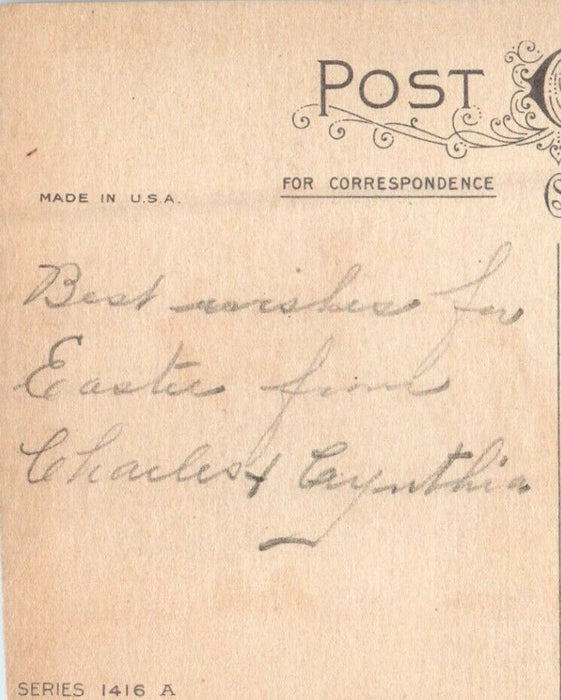 POST
FOR CORRESPONDENCE
MADE IN U.S.A.
Best wishes for
Easter from
Charles & Cynthia
SERIES 1416 A